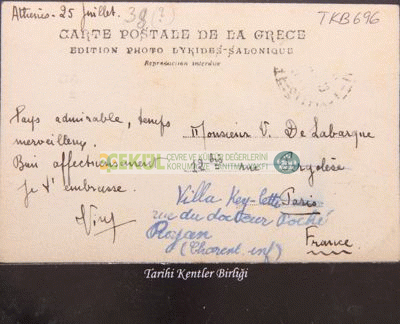 Athènes - 25 Juillet. 39 (?)
TKB696
CARTE POSTALE DE LA GRECE
EDITION PHOTO LYKIDES-SALONIQUE
Reproduction interdite
Pays admirable, temps
merveilleux.
Bien affectueusement
Je t'embrasse.
Monsieur V. De Labarque
rue
Paris
France.
Villa Key-Lette
rue du docteur Poché
Royan
(Charent. inf)
ÇEKÜL
ÇEVRE VE KÜLTÜR DEĞERLERİNİ
KORUMA VE TANITMA VAKFI
Tarihi Kentler Birliği